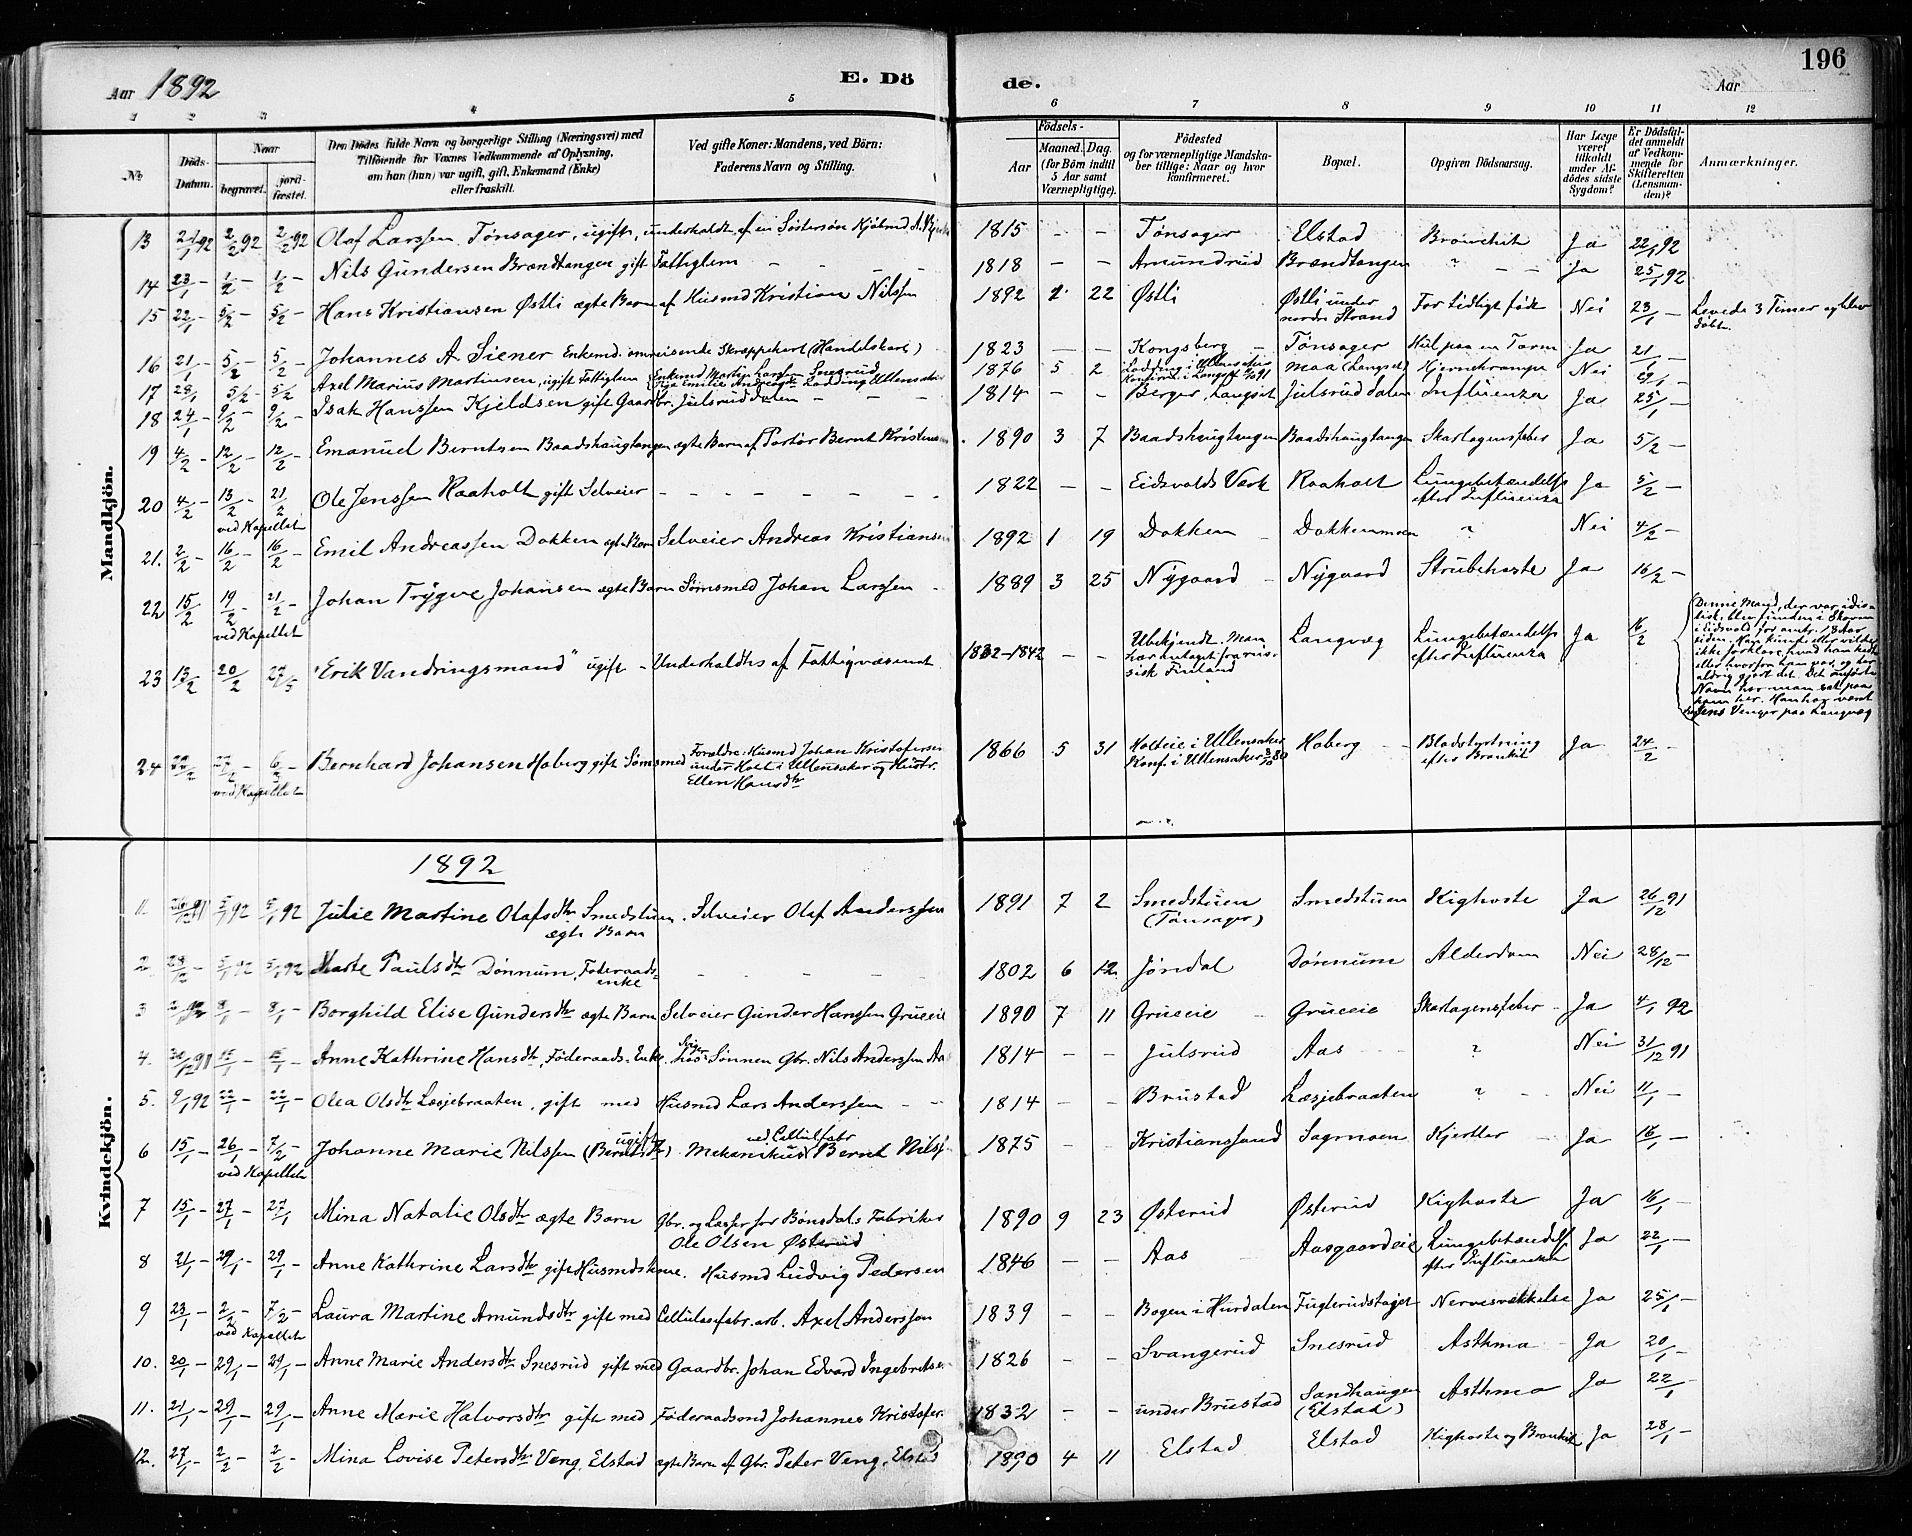 Aar 1892 E. Dö de. Aar 196
1 2 3 4 5 6 7 8 9 10 11 12
No. Döds-Datum. Naar begravet. jordfæstet. Den Dödes fulde Navn og borgerlige Stilling (Næringsvei) med Tilföiende for Voxnes Vedkommende af Oplysning, om han (hun) var ugift, gift, Enkemand (Enke) eller fraskilt. Ved gifte Koner: Mandens, ved Börn: Faderens Navn og Stilling. Födsels- Aar Maaned. Dag. (for Börn indtil 5 Aar samt Værnepligtige). Födested og for værnepligtige Mandskaber tillige: Naar og hvor konfirmeret. Bopæl. Opgiven Dödsaarsag. Har Læge været tilkaldt under Afdödes sidste Sygdom? Er Dödsfaldet anmeldt af Vedkommende for Skifteretten (Lensmanden)? Anmærkninger.
Mandkjön.
13 21/1 92 2/2 92 2/2 92 Olaf Larssen Tønsager, ugift, underholdt af en Søstersøn 1815 - - Tønsager Elstad Bronchit Ja 22/1 92
14 23/1 - 1/2 - 1/2 - Nils Gundersen Brændtangen gift Fattiglem - - 1818 - - Amundrud Brændtangen " - - Ja 25/1 92
15 22/1 - 5/2 - 5/2 - Hans Kristiansen Østli ægte Barn af Husmd Kristian Nilssen 1892 1 22 Østli Østli under nordre Strand For tidligt født Nei 23/1 - Levede 3 Timer og blev døbt.
16 21/1 - 5/2 - 5/2 - Johannes A. Siener Enkemd. omreisende Skræppekarl (Handelskarl) - 1823 - - Kongsberg - Tønsager Hul paa en Tarm Ja 21/1 -
17 28/1 - 5/2 - 5/2 Axel Marius Martinsen, ugift Fattiglem Enkemd Martin Larssen 1876 5 2 Ladding i Ullensaker maa (Langset) Hjernekrampe Nei 29/1 -
18 24/1 - 9/2 - 9/2 - Isak Hanssen Kjeldsen gift Gaardbr. Julsruddalen - - - 1814 - - Berger, Langset Julsruddalen Influenza Ja 25/1 -
19 4/2 - 12/2 - 12/2 - Emanuel Berntsen Baadshaugtangen ægte Barn af Portør Bernt Kristensen 1890 3 7 Baadshaugtangen Baadshaugtangen Skarlagensfeber Ja 5/2 -
20 4/2 - 13/2 - 21/2 Ole Jenssen Raaholt gift Selveier - - - - - - - 1822 - - Eidsvolds Værk Raaholt Lungebetændelse efter Influenza Ja 5/2 -
ved Kapellet
21. 2/2 - 16/2 - 16/2 - Emil Andreassen Dokken ægte Barn Selveier Andreas Kristiansen 1892 1 19 Dokken - Dokkenmoen ? Nei 4/2 -
22 15/2 19/2 - 21/2 - Johan Trygve Johansen ægte Barn Sømsmed Johan Larssen - 1889 3 25 Nygaard - Nygaard Strubehoste Ja 16/2 -
ved Kapellet
23 13/2 20/2 27/5 "Erik Vandringsmand" ugift - Underholdtes af Fattigvæsenet 1832-1842 - - Ubekjendt. Man har antaget fra russisk Finland Langvæg Lungebetændelse efter Influenza Ja 16/2 Denne Mand, der var idiotisk, blev funden i Skoven i Eidsvold for omtr. 13 Aar siden. Han kunde eller vilde ikke forklare, hvad han hedte eller hvorfra han var, og har aldrig gjort det. Det anførte Navn har man sat paa ham her. Han har været Jens Venger paa Langvæg
24 22/2 27/2 - 6/3 - Bernhard Johansen Hoberg gift Sømsmed Forældre: Husmd Johan Kristofersen under Holt i Ullensaker og Hustr. Ellen Hansdtr 1866 5 31 Holteie i Ullensaker Konf. i Ullensaker 3/10 80 Hoberg - - Blodstyrtning efter Bronkit Ja 24/2 -
ved Kapellet
Kvindekjön.
1892
1. 26/12 91 5/1 92 5/1 92 Julie Martine Olafsdtr Smedstuen ægte Barn Selveier Olaf Anderssen 1891 7 2 Smedstuen (Tønsager) Smedstuen Kighoste Ja 26/12 91
2. 28/12 - 5/1 92 5/1 92 Marte Paulsdtr Dønnum, Føderaadsenke - - - - 1802 6 12 Jøndal Dønnum Alderdom Nei 28/12 -
3 2/1 92 8/1 - 8/1 - Borghild Elise Gundersdtr ægte Barn Selveier Gunder Hanssen Grueeie 1890 7 11 Grueeie - Grueeie Skarlagensfeber - Ja 4/1 92
4. 30/12 91 15/1 - 15/1 - Anne Kathrine Hansdtr, Føderaads-Enke. hos Sviger Sønnen Gbr. Nils Anderssen Aas 1814 - - Julsrud Aas ? Nei 31/12 91
5. 9/1 92 22/1 - 22/1 - Olea Olsdtr Læsjebraaten, gift med Husmd Lars Anderssen - - 1814 - - Brustad Læsjebraaten ? - Nei 11/1 -
6 15/1 - 26/1 - 7/2 - Johanne Marie Nilssen (Berntsdtr) ugift Mekanikus ved Cellulfabr Bernt Nilss 1875 - - Kristianssand Sagmoen Hjertler - Ja 16/1 -
ved Kapellet
7 15/1 - 27/1 - 27/1 Mina Natalie Olsdtr ægte Barn Gbr. og Lasser for Bønsdals Fabriker Ole Olsen Østerud 1890 9 23 Østerud Østerud Kighoste Ja 16/1 -
8 21/1 - 29/1 - 29/1 - Anne Kathrine Larsdtr gift Husmdskone. Husmd Ludvig Pedersen 1846 - - Aas Aasgaardeie Lungebetændelse efter Influenza Ja 22/1 -
9 23/1 - 2/2 - 7/2 - Laura Martine Amundsdtr gift med Cellulosfabr. arb. Axel Anderssen 1839 - - Bogen i Hurdalen Fuglerudstajet Nervesvækkelse Ja 25/1 -
ved Kapellet
10. 20/1 - 29/1 - 29/1 - Anne Marie Andersdtr Snesrud gift med Gaardbr. Johan Edvard Ingebretsen 1826 - - Svangerud Snesrud Asthma - Ja 20/1 -
11. 21/1 - 29/1 - 29/1 - Anne Marie Halvorsdtr gift med Føderaadsmd Johannes Kristofer 1832 - - under Brustad Sandhaugen (Elstad) Asthma Ja 22/1 -
12. 27/1 - 2/2 - 2/2 - Mina Lovise Petersdtr Veng, Elstad ægte Barn af Gbr. Peter Veng, Elstad 1890 4 11 Elstad Elstad Kighoste og Bronkit Ja 28/1 -